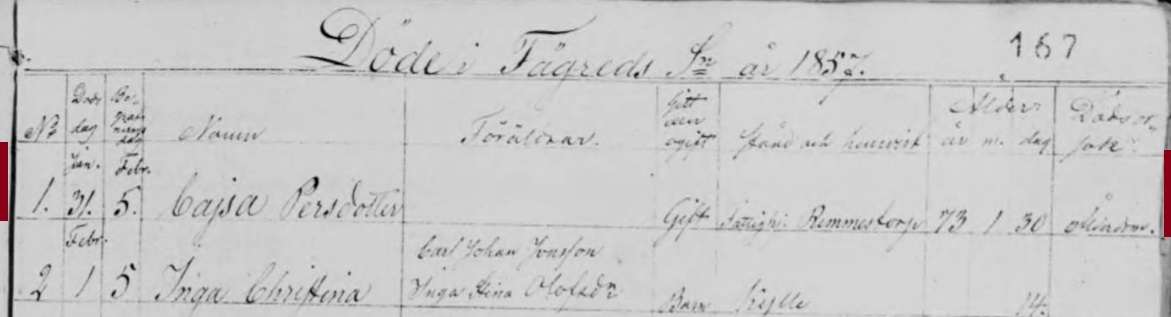 Döde i Fägreds Sn år 1857.
167
No Döds dag Begrafnings dag Namn Föräldrar. Gift eller ogift Stånd och hemvist Ålder år m. dag Dödsorsak
Jan. Febr.
1. 31. 5. Cajsa Persdotter Gift Fattigh: Remmestorp 73 1 30 ålderdom.
Febr.
Carl Johan Jonsson
2 1 5 Inga Christina Inga Stina Olofsdr Barn Kylle 14.